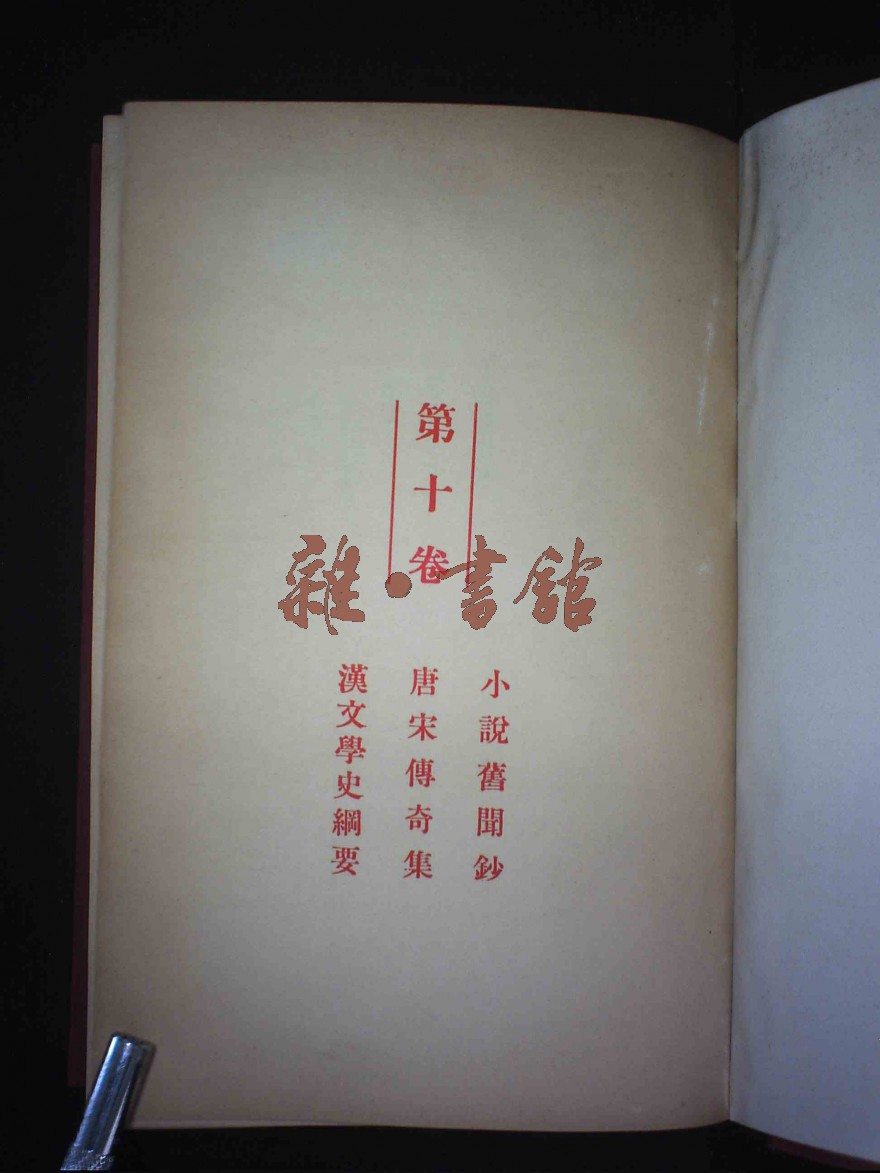 第十卷
雜·書館
小說舊聞鈔
唐宋傳奇集
漢文學史綱要